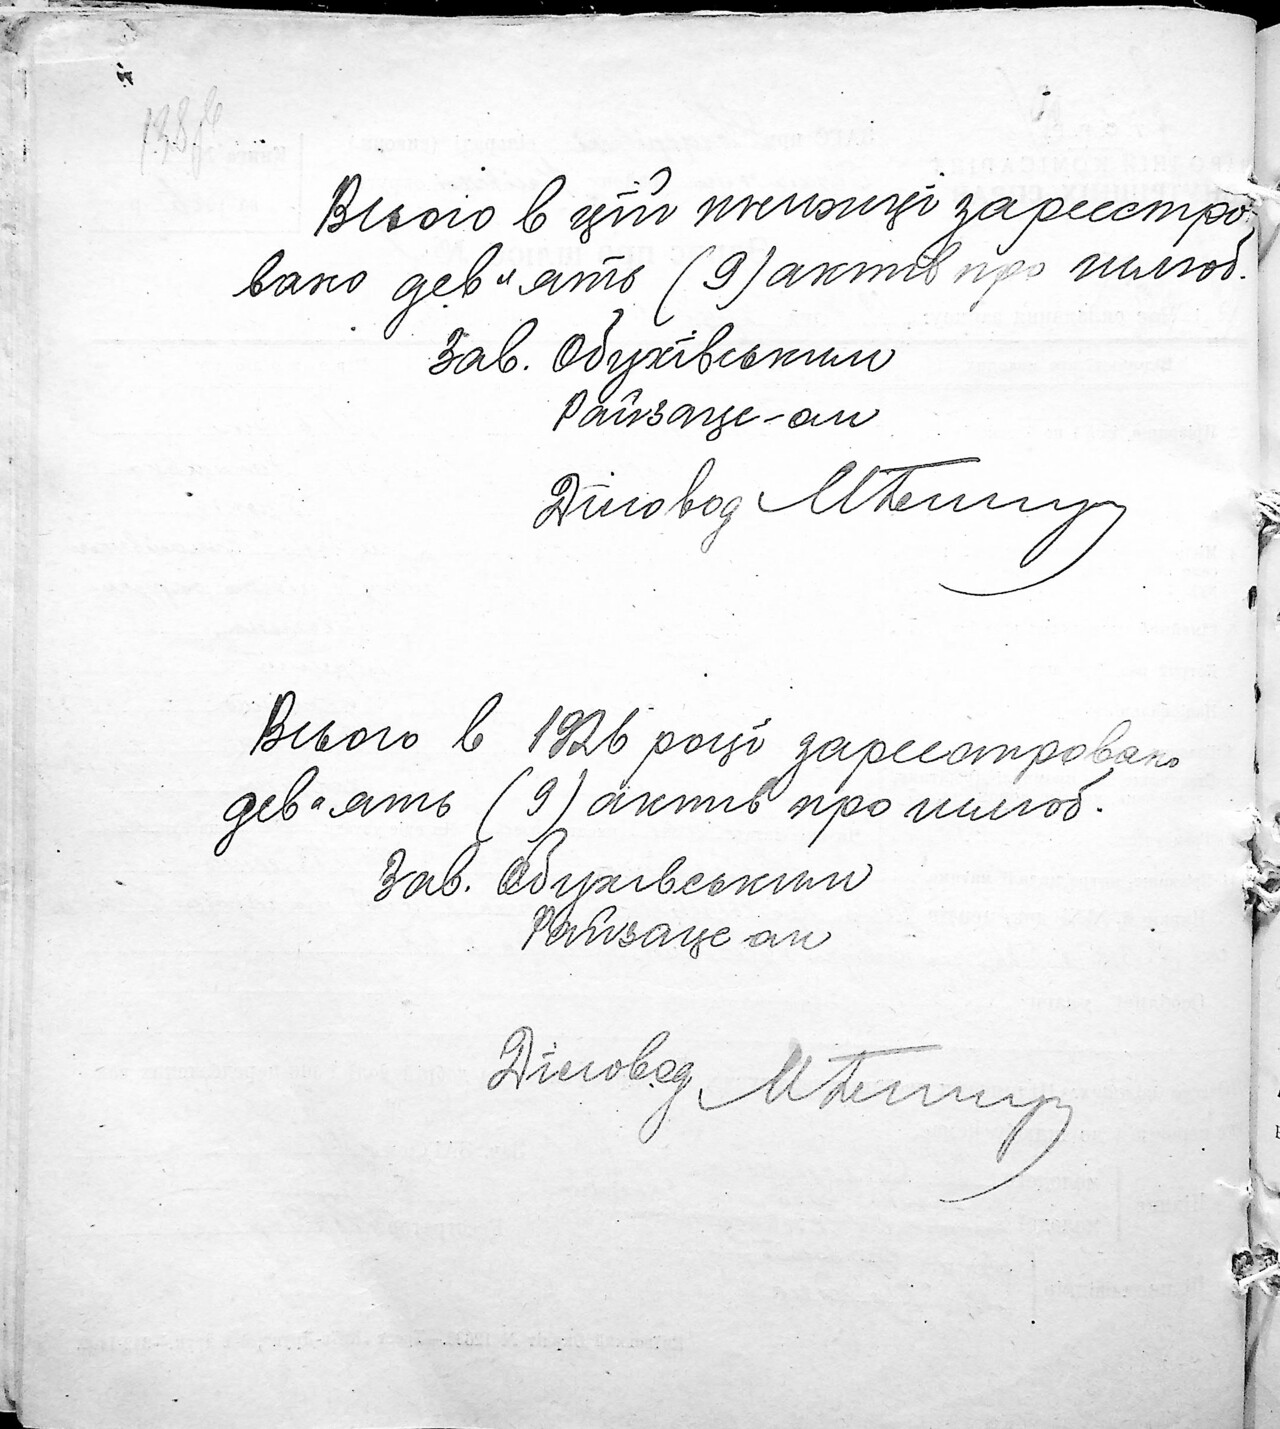 Всього в цій книжці зареєстро
вано дев"ять (9) актів про шлюб.
Зав. Обухівським
Райзагс-ом
Діловод
Всього в 1926 році зареєстровано
дев"ять (9) актів про шлюб.
Зав. Обухівським
Райзагс-ом
Діловод